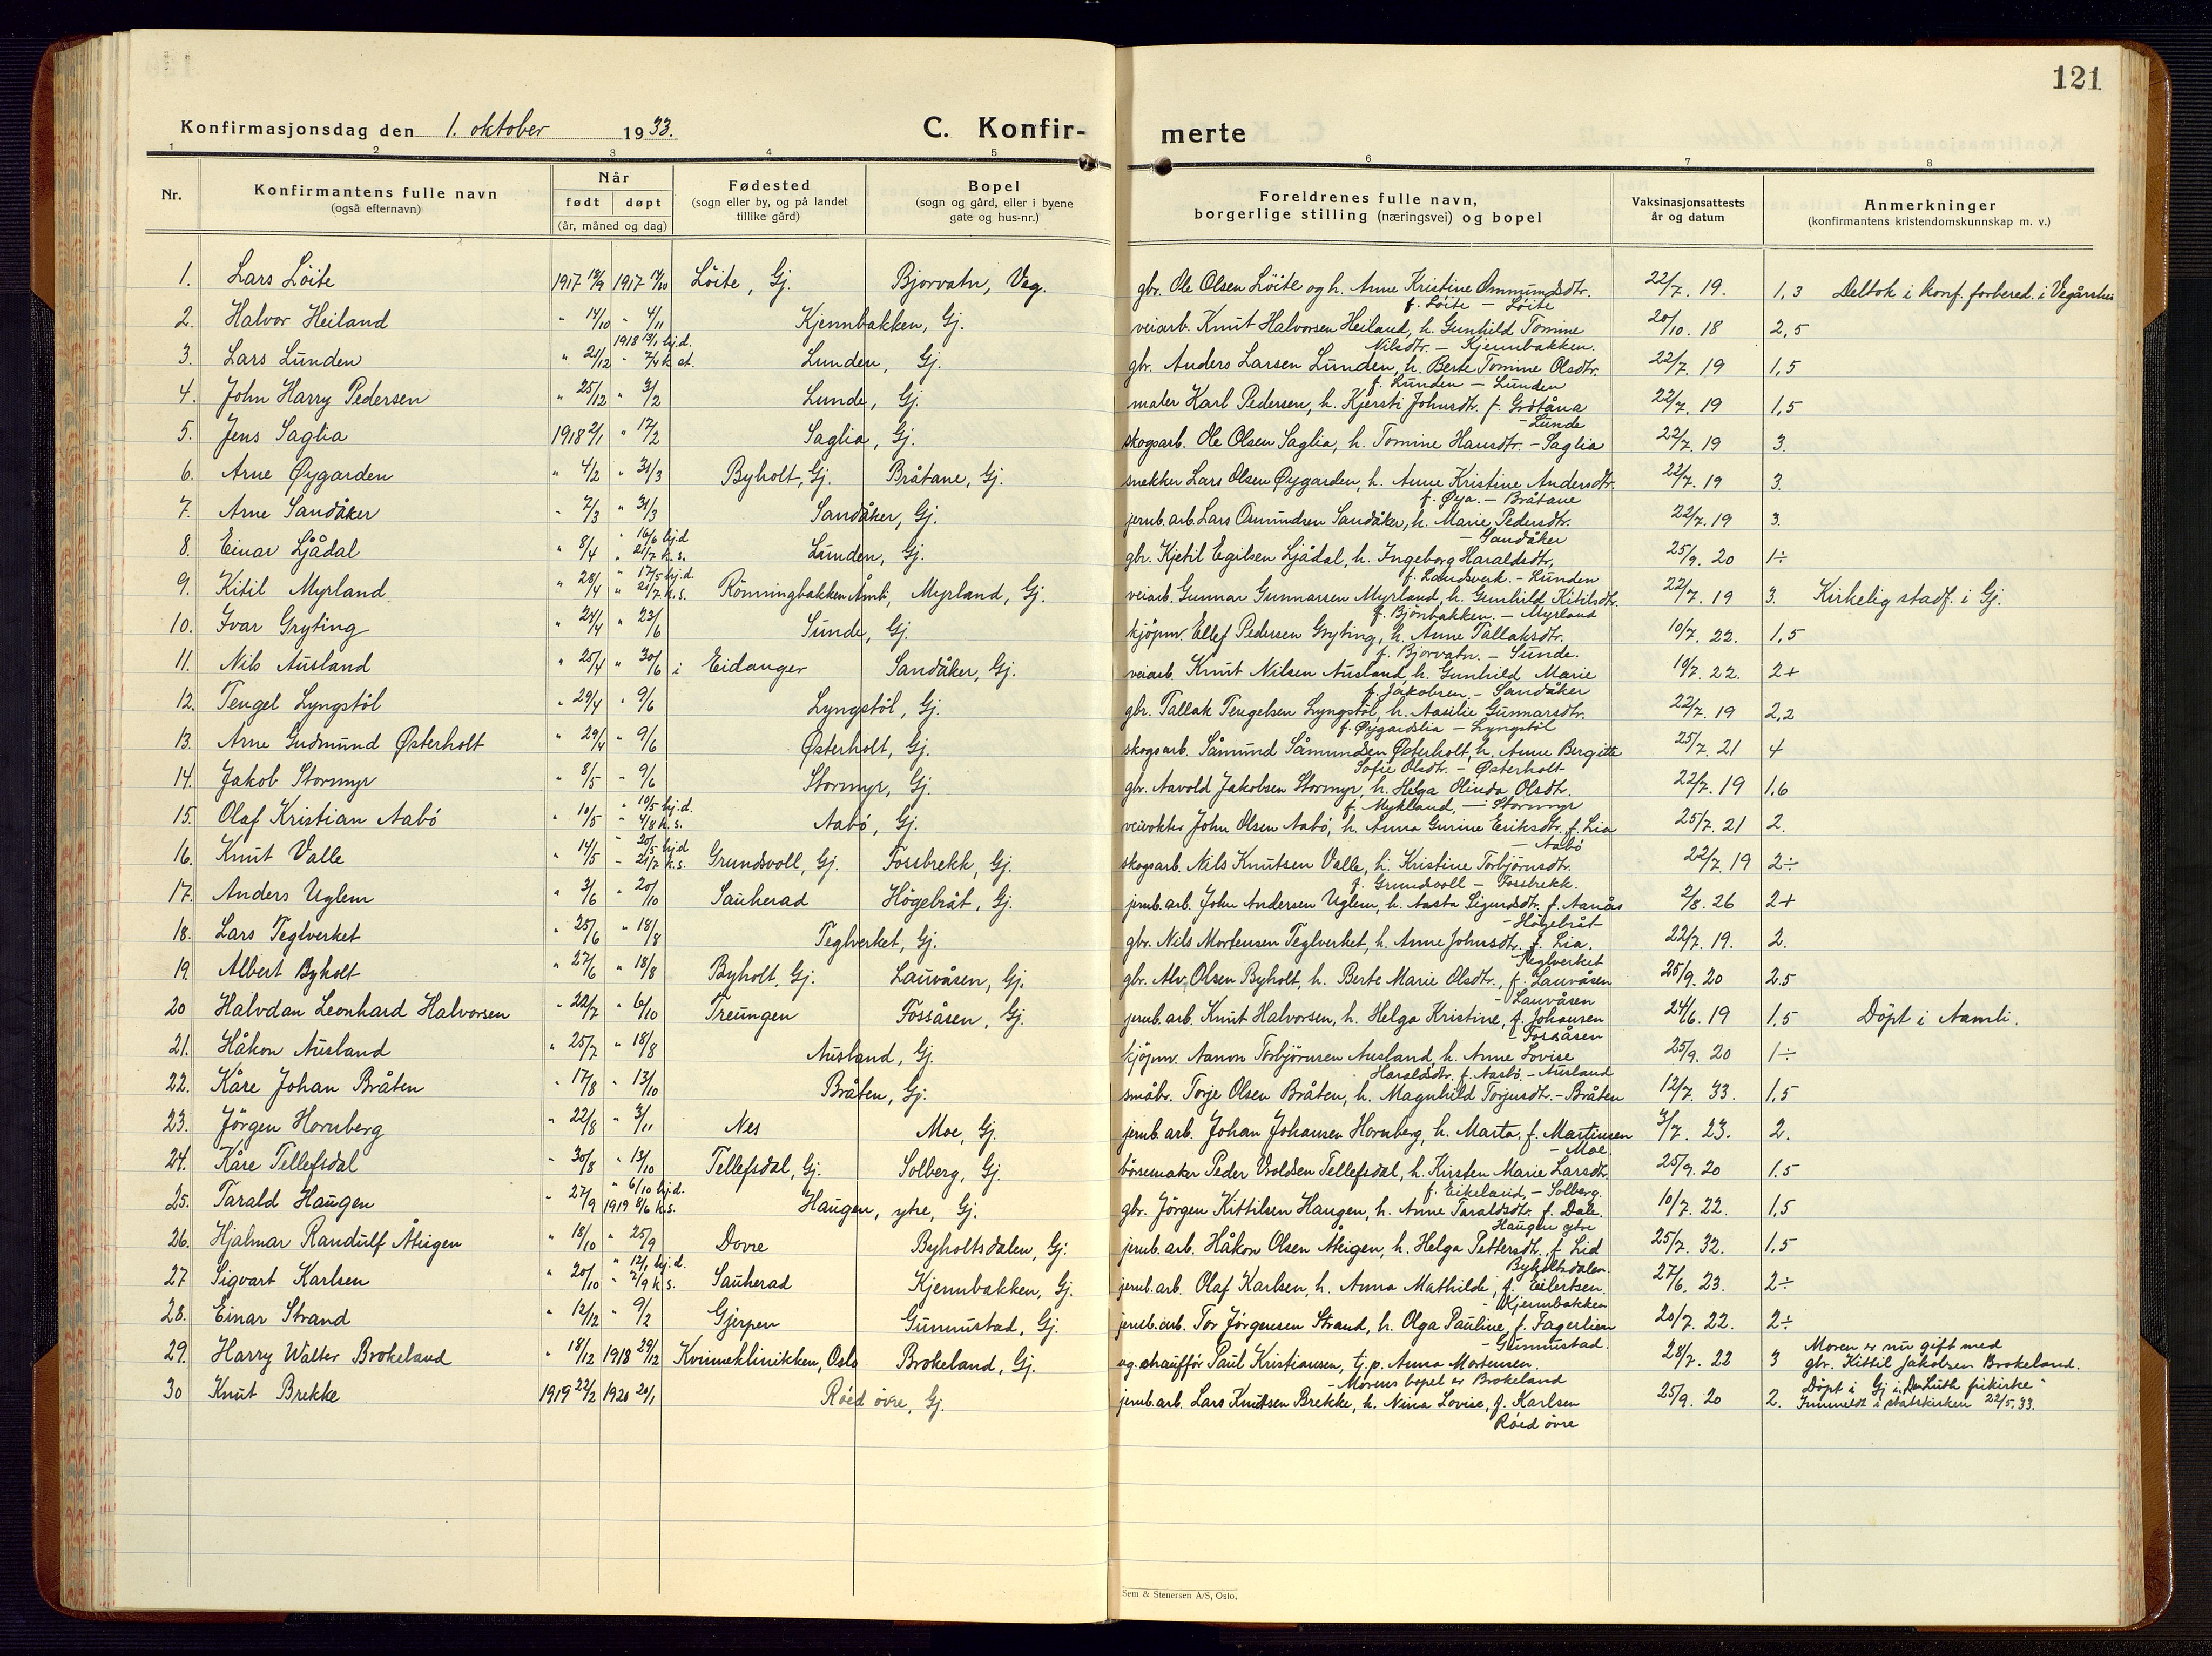 121
Konfirmasjonsdag den 1. oktober 1933. C. Konfir-
merte
1 2 3 4 5 6 7 8
Nr. Konfirmantens fulle navn (også efternavn) Når født døpt (år, måned og dag) Fødested (sogn eller by, og på landet tillike gård) Bopel (sogn og gård, eller i byene gate og hus-nr.) Foreldrenes fulle navn, borgerlige stilling (næringsvei) og bopel Vaksinasjonsattests år og datum Anmerkninger (konfirmantens kristendomskunnskap m. v.)
1. Lars Löite 1917 13/9 1917 14/10 Löite, Gj. Bjorvatn, Veg. gbr. Ole Olsen Löite og h. Anne Kristine Ommundsdtr. f. Löite - Löite 22/7. 19. 1,3 Deltok i konf. forbered. i Vegårshei
2. Halvor Heiland " 14/10 " 4/11 Kjennbakken, Gj. veiarb. Knut Halvorsen Heiland, h. Gunhild Tomine Nilsdtr. - Kjennbakken. 20/10. 18 2,5
3. Lars Lunden " 21/12 1918 13/1 hj.d. " 7/4 k. st. Lunden, Gj. gbr. Anders Larsen Lunden, h. Berte Tomine Olsdtr. f. Lunden - Lunden 22/7. 19 1,5
4. John Harry Pedersen " 25/12 " 3/2 Lunde, Gj. maler Karl Pedersen, h. Kjersti Johnsdtr. f. Gröttåna - Lunde 22/7. 19 1,5
5. Jens Saglia 1918 2/1 " 17/2 Saglia, Gj. skogsarb. Ole Olsen Saglia, h. Tomine Hansdtr. - Saglia 22/7. 19 3.
6. Arne Øygarden " 4/2 " 31/3 Byholt, Gj. Bråtane, Gj. snekker Lars Olsen Øygarden, h. Anne Kristine Andersdtr. f. Øya. - Bråtane 22/7. 19 3.
7. Arne Sandåker " 7/3 " 31/3 Sandåker, Gj. jernb. arb. Lars Osmundsen Sandåker, h. Marie Pedersdtr. - Sandåker 22/7. 19 3.
8. Einar Ljådal " 8/4 " 16/6 hj.d " 21/7 k. s. Lunden, Gj. gbr. Kjetil Egilsen Ljådal, h. Ingeborg Haraldsdtr, f. Landsverk. - Lunden 25/9. 20 1÷
9. Kitil Myrland " 28/4 " 17/5 hj.d. " 21/7 k. s. Rönningbakken Åmli, Myrland, Gj. veiarb. Gunnar Gunnarsen Myrland, h. Gunhild Kitilsdtr. f. Björnbakken. - Myrland 22/7. 19 3. Kirkelig stadf. i Gj.
10. Ivar Gryting " 24/4 " 23/6 Sunde, Gj. kjöpm. Ellef Pedersen Gryting, h. Anne Tallaksdtr. f. Bjorvatn. - Sunde. 10/7. 22. 1,5
11. Nils Ausland " 25/4 " 30/6 i Eidanger Sandåker, Gj. veiarb. Knut Nilsen Ausland, h. Gunhild Marie f. Jakobsen. - Sandåker 10/7. 22. 2+
12. Tengel Lyngstöl " 29/4 " 9/6 Lyngstöl, Gj. gbr. Tallak Tengelsen Lyngstöl, h. Aasilie Gunnarsdtr. f. Øygardslia - Lyngstöl 22/7. 19 2,2
13. Arne Gudmund Østerholt " 29/4 " 9/6 Østerholt, Gj. skogsarb. Såmund Såmundsen Østerholt, h. Anne Bergitte Sofie Olsdtr. - Østerholt 25/7. 21 4
14. Jakob Stormyr " 8/5 " 9/6 Stormyr, Gj. gbr. Aavold Jakobsen Stormyr, h. Helga Olinda Olsdtr. f. Mykland, - Stormyr 22/7. 19 1,6
15. Olaf Kristian Aabö " 10/5 " 10/5 hj.d. " 4/8 k. s. Aabö, Gj. veivokter John Olsen Aabö, h. Anna Gurine Eriksdtr. f. Lia - Aabö 25/7. 21 2.
16. Knut Valle " 14/5 " 20/5 hj.d " 21/7 k. s. Grundsvoll, Gj. Fossbrekk, Gj. skogsarb. Nils Knutsen Valle, h. Kristine Torbjörnsdtr. f. Grundsvoll - Fossbrekk. 22/7. 19 2÷
17. Anders Uglem " 3/6 " 20/10 Sauherad Högebråt, Gj. jernb. arb. John Andersen Uglem, h. Aasta Sigurdsdtr. f. Aanås - Högebråt 2/8. 26 2+
18. Lars Teglverket " 25/6 " 18/8 Teglverket, Gj. gbr. Nils Mortensen Teglverket, h. Anne Johnsdtr. f. Lia. Teglverket 22/7. 19. 2.
19. Albert Byholt " 27/6 " 18/8 Byholt, Gj. Lauvåsen, Gj. gbr. Alv Olsen Byholt, h. Berte Marie Olsdtr., f. Lauvåsen - Lauvåsen 25/9. 20 2.5
20 Halvdan Leonhard Halvorsen " 22/7 " 6/10 Treungen Fossåsen, Gj. jernb. arb. Knut Halvorsen, h. Helga Kristine, f. Johansen - Fossåsen 24/6. 19 1,5 Döpt i Aamli.
21. Håkon Ausland " 25/7 " 18/8 Ausland, Gj. kjöpm. Aanon Torbjörnsen Ausland, h. Anne Lovise Haraldsdtr. f. Aasbö. - Ausland 25/9. 20 1÷
22. Kåre Johan Bråten " 17/8 " 13/10 Bråten, Gj. småbr. Torje Olsen Bråten, h. Magnhild Torjusdtr. - Bråten 12/7. 33. 1,5
23. Jörgen Hornberg " 22/8 " 3/11 Nes Moe, Gj. jernb. arb. Johan Johansen Hornberg, h. Marta. f. Martinsen - Moe. 3/7. 23. 2.
24. Kåre Tellefsdal " 30/8 " 13/10 Tellefsdal, Gj. Solberg, Gj. börsemaker Peder Vroldsen Tellefsdal, h. Kirsten Marie Larsdtr. f. Eikeland, - Solberg. 25/9. 20 1.5
25. Tarald Haugen " 27/9 " 6/10 hj.d. 1919 8/6 k.s. Haugen, ytre, Gj. gbr. Jörgen Kittilsen Haugen, h. Anne Taraldsdtr. f. Dale. Haugen ytre 10/7. 22. 1,5
26. Hjalmar Randulf Åteigen " 18/10 " 25/9 Dovre Byholtsdalen, Gj. jernb. arb. Håkon Olsen Åteigen, h. Helga Pettersdtr. f. Lid Byholtsdalen. 25/7. 32. 1.5
27 Sigvart Karlsen " 20/10 " 12/1 hj.d. " 7/9 k s. Sauherad Kjennbakken, Gj. jernb. arb. Olaf Karlsen, h. Anna Mathilde, f. Eilertsen. - Kjennbakken 27/6. 23. 2÷
28. Einar Strand " 12/12 " 9/2 Gjerpen Gunnustad, Gj. jernb. arb. Tor Jörgensen Strand, h. Olga Pauline, f. Fagerlien - Gunnustad. 20/7. 22. 2÷
29. Harry Walter Brokeland " 18/12 1918 29/12 Kvinneklinikken, Oslo Brokeland, Gj. ug. chaufför Paul Kristiansen, tj. p. Anna Mortensen. - Morens bopel er Brokeland 28/7. 22 3 Moren er nu gift med gbr. Kittil Jakobsen Brokeland.
30 Knut Brekke 1919 22/2 1920 20/1 Röed övre, Gj. jernb. arb. Lars Knutsen Brekke, h. Nina Lovise, f. Karlsen Röed övre 25/9. 20 2. Döpt i Gj i "Den Luth frikirke" Innmeldt i statskirken 22/5. 33.
Sem & Stenersen A/S, Oslo.